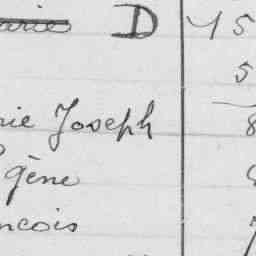 D 45
5
rie Joseph 8
gène
ncois 7